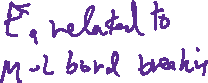 Ea related to
M-L bond breaking